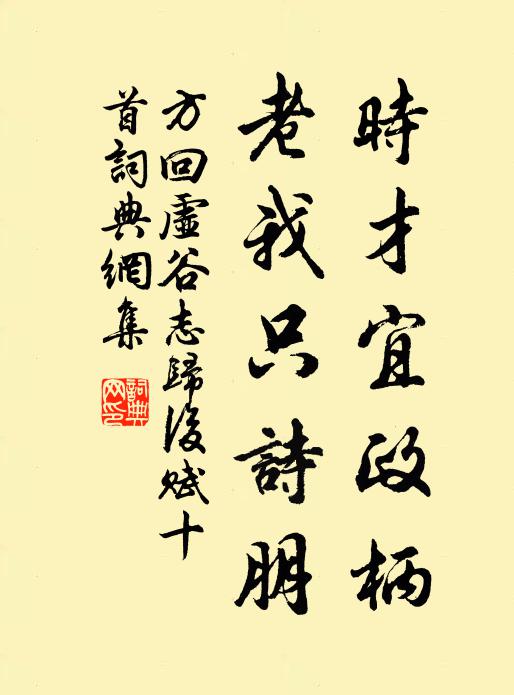 時才宜政柄
老我只詩朋
方回虛谷志歸後賦十
首詞典網集
詞典网印